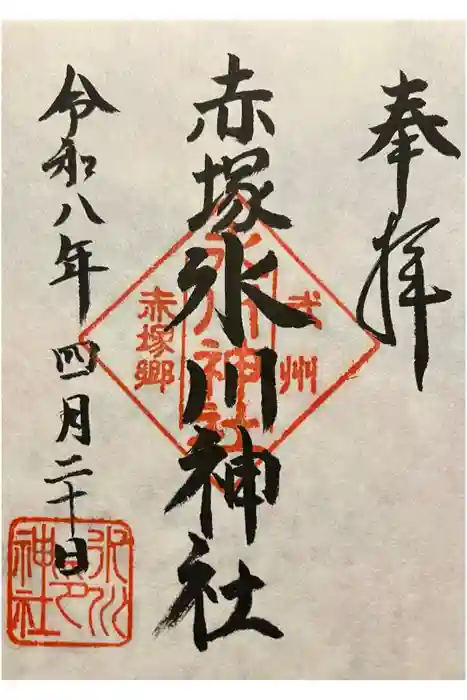 奉拝
武州
氷川神社
赤塚郷
赤塚氷川神社
令和八年四月二十日
氷川
神社